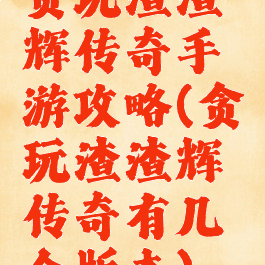 贪玩渣渣
辉传奇手
游攻略(贪
玩渣渣辉
传奇有几
个版本)